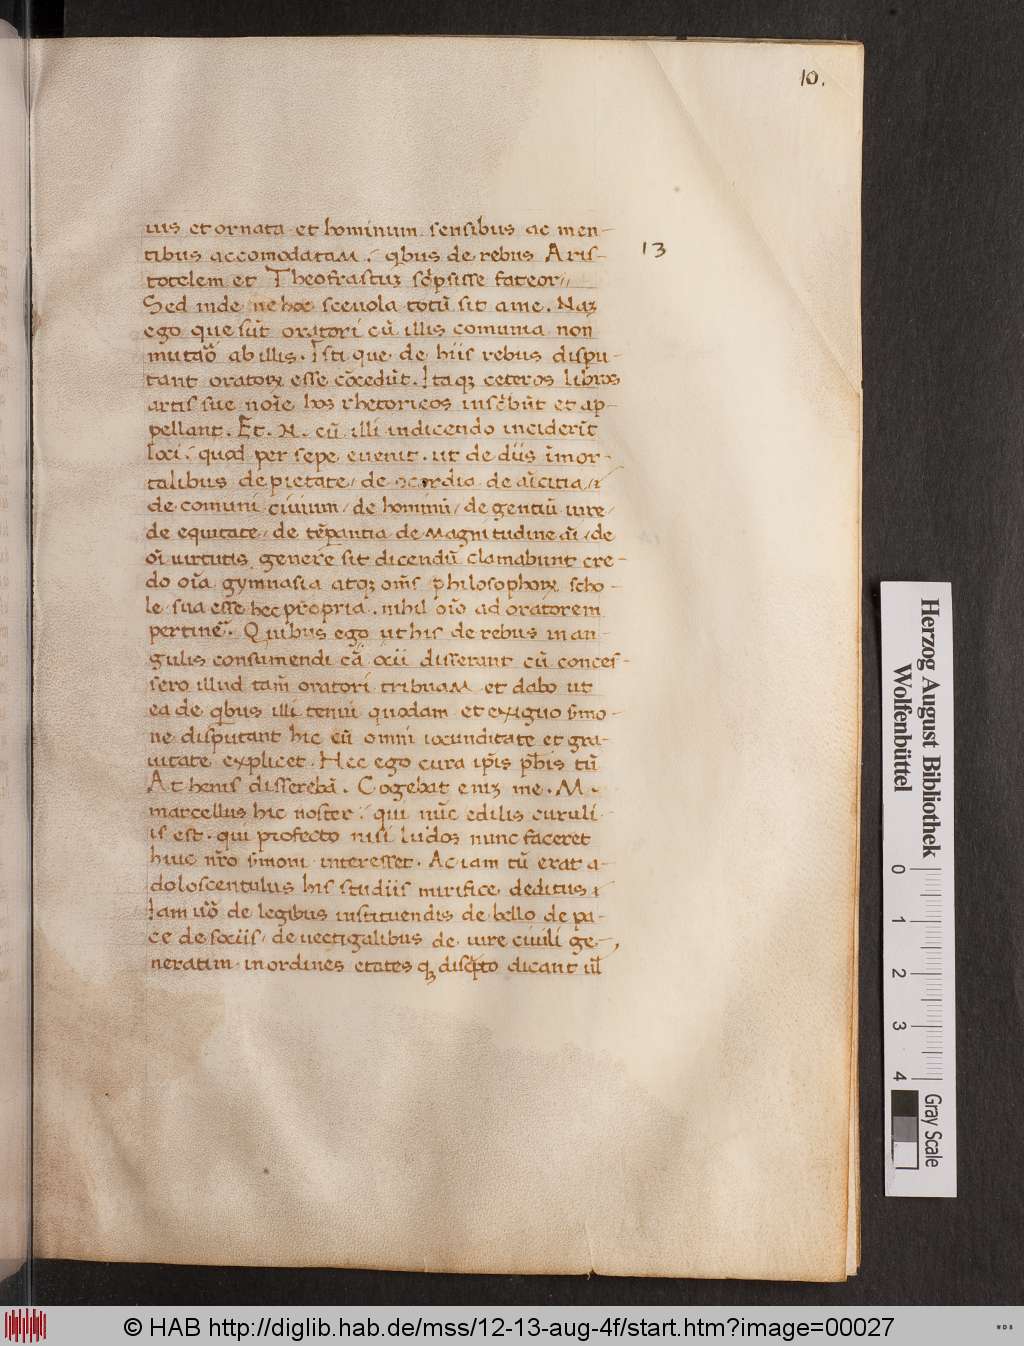 10.
uis et ornata et hominum sensibus ac men-
tibus accomodatam. qbus de rebus Aris-
13
totelem et Theofrastuʒ sc̓psisse fateor//
Sed uide ne hoc sceuola totū sit a me. Naʒ
ego que sūt oratori cū illis comunia non
mutuō ab illis. Isti que de hiis rebus dispu-
tant oratorꝝ esse cōcedūt. Itaqʒ ceteros libros
artis sue noīe hos rhetoricos insc̓būt et ap-
pellant. Et. N. cū illi in dicendo inciderīt
loci quod per sepe euenit. ut de diis īmor-
talibus de pietate/ de ↄcordia de aīcitia/
de comuni ciuium/ de hominū/ de gentiū iure/
de equitate/ de tēpantia de magnitudine aī/ de
oī uirtutis genere sit dicendū clamabunt cre-
do oīa gymnasia atqʒ om̄s philosophorꝝ scho-
le sua esse hec propria. nihil oīo ad oratorem
pertine͂. Quibus ego ut his de rebus in an-
gulis consumendi cā ocii disserant cū conces-
sero illud tam̄ oratori tribuam et dabo ut
ea de qbus illi tenui quodam et exiguo s̄mo-
ne disputant hic cū omni iocunditate et gra-
uitate explicet. Hec ego cura ip̄is ph̄is tū
Athenis disserebā. Cogebat eniʒ me. M.
marcellus hic noster qui nūc edilis curuli
is est. qui profecto nisi ludos nunc faceret
huic nr̄o s̄moni interesset. Ac iam tū erat a-
doloscentulus his studiis mirifice deditus
Iam uō de legibus instituendis de bello de pa-
ce de sociis/ de uectigalibus de iure ciuili ge-
neratim in ordines etates qʒ disc̓pto dicant ul̄
© HAB http://diglib.hab.de/mss/12-13-aug-4f/start.htm?image=00027
Herzog August Bibliothek
Wolfenbüttel
0 1 2 3 4
Gray Scale